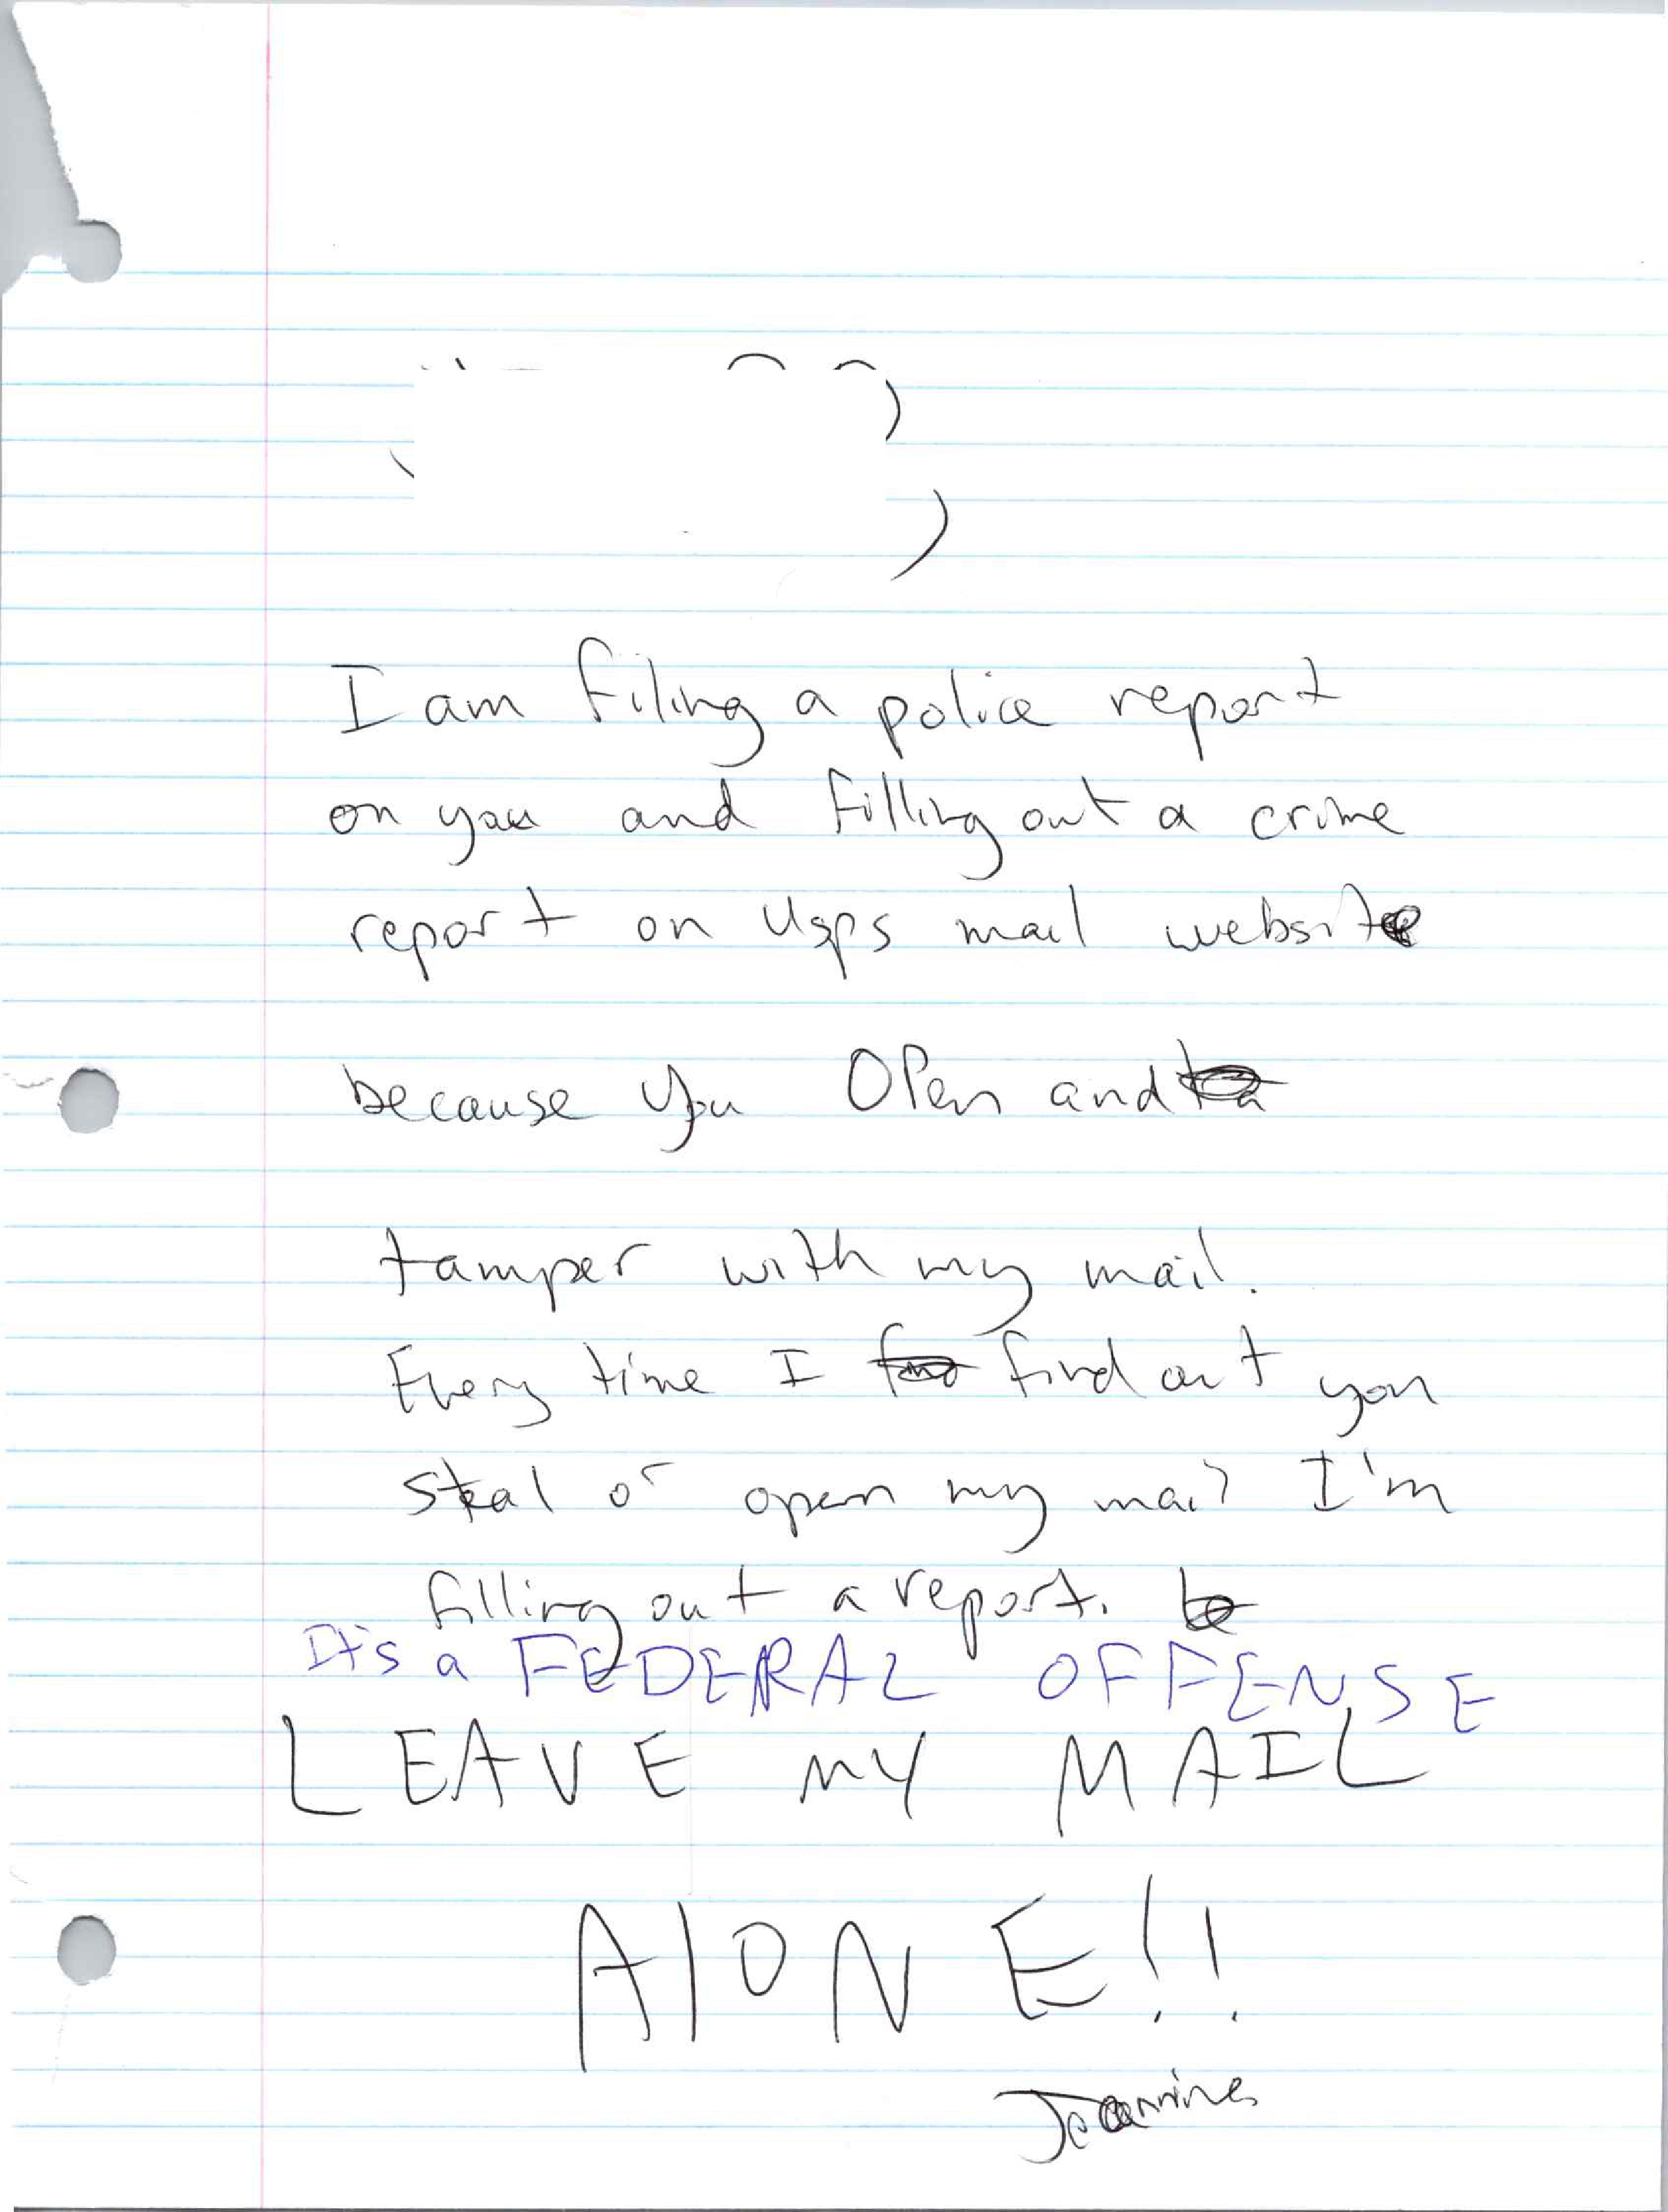 I am filing a police report
on you and filling out a crime
report on usps mail website
because you OPen and
tamper with my mail.
Every time I find out you
steal or open my mail I'm
filling out a report.
It's a FEDERAL OFFENSE
LEAVE MY MAIL
AlONE!!
Jeannine